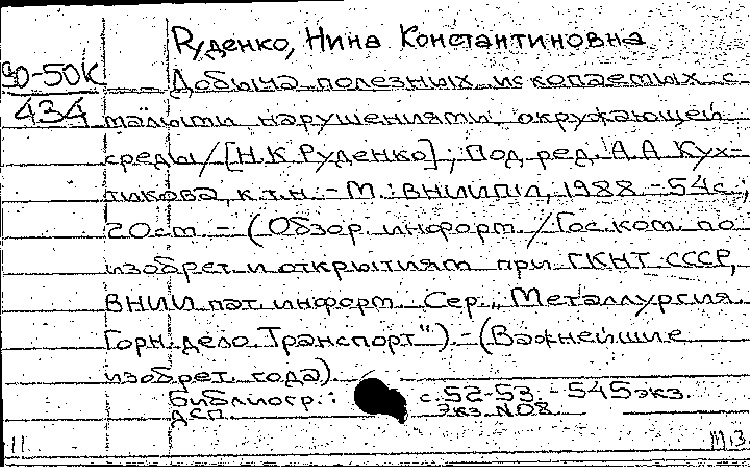 Руденко, Нина Константиновна
90-50к
434
Добыча полезных ископаемых с
малыми нарушениями окружающей
среды / [Н.К. Руденко]; Под ред. А.А. Кух-
тикова, к.т.н. - М.: ВНИИПИ, 1988 - 54с.;
20см - (Обзор. информ. / Гос.ком. по
изобрет. и открытиям при ГКНТ СССР,
ВНИИ пат. информ. Сер. "Металлургия.
Горн. дело. Транспорт") - (Важнейшие
изобрет. года)
Библиогр.: с.52-53. - 545экз.
ДСП Экз. N08
11